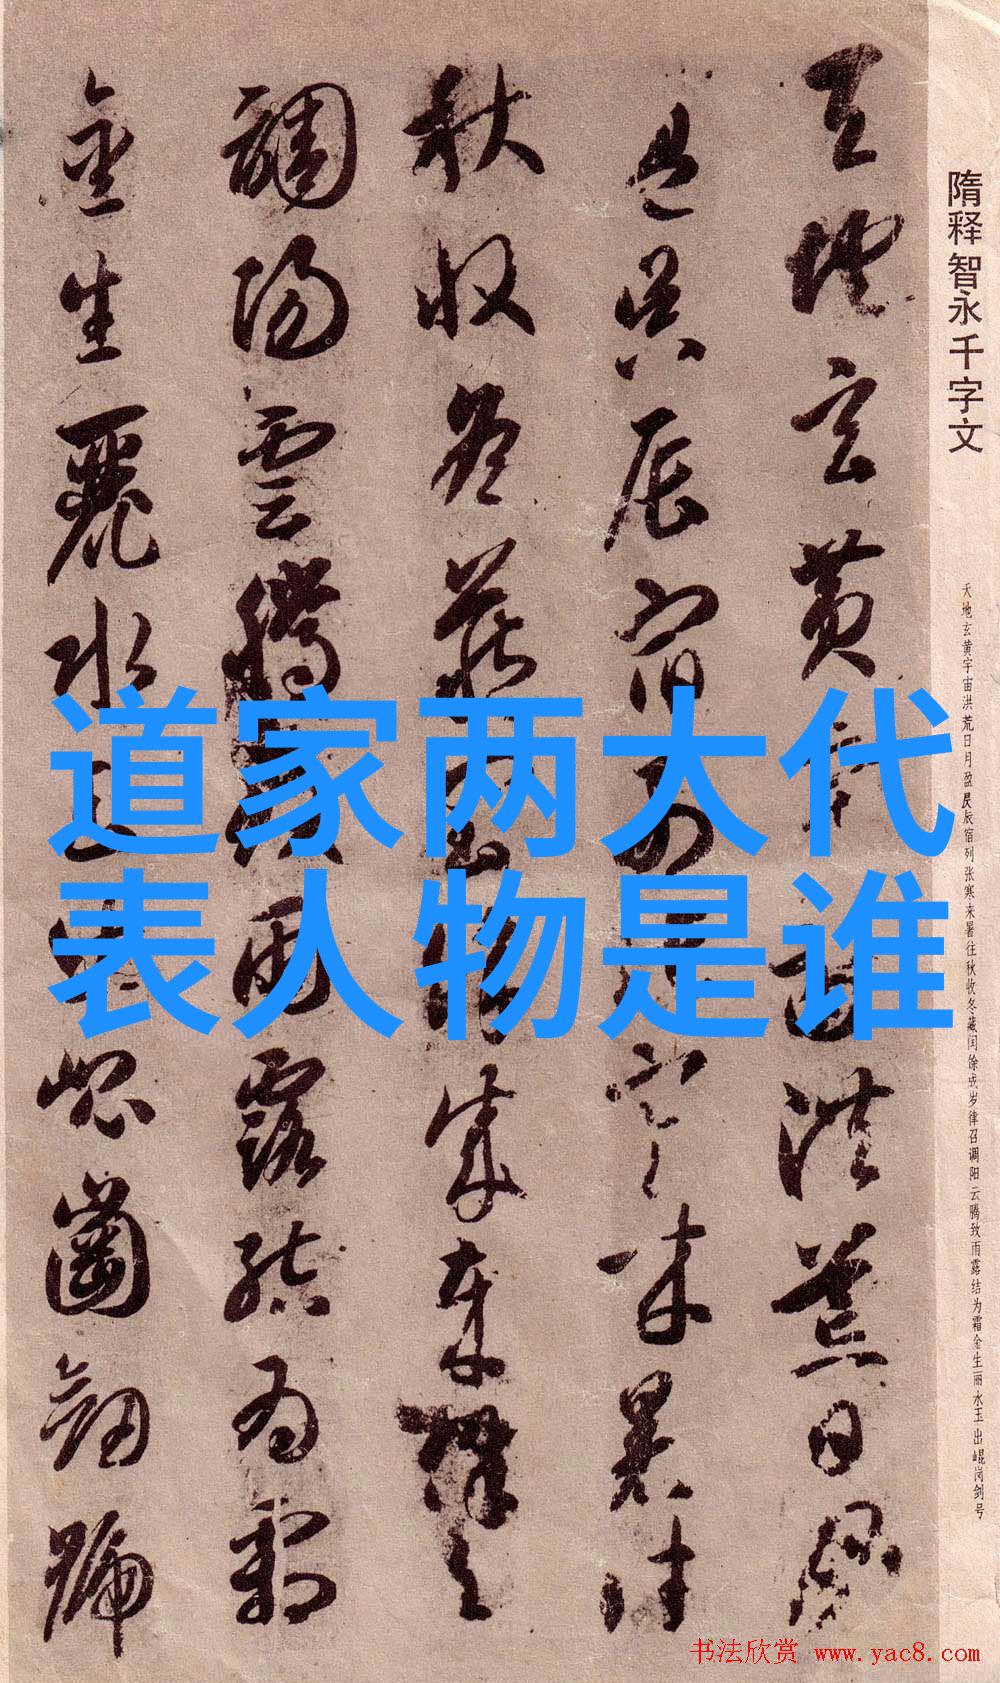 道家两大代
表人物是谁
隋释智永千字文
天地玄黄宇宙洪荒日月盈昃辰宿列张寒来暑往秋收冬藏闰馀成岁律召调阳云腾致雨露结为霜金生丽水玉出崐岗剑号
天地玄黄宇宙洪荒日月
盈昃辰宿列張寒来暑往
秋收冬藏閏餘成歲律召
調陽雲騰致雨露結為霜
金生麗水玉出崐崗劒號
书法欣赏 www.yac8.com